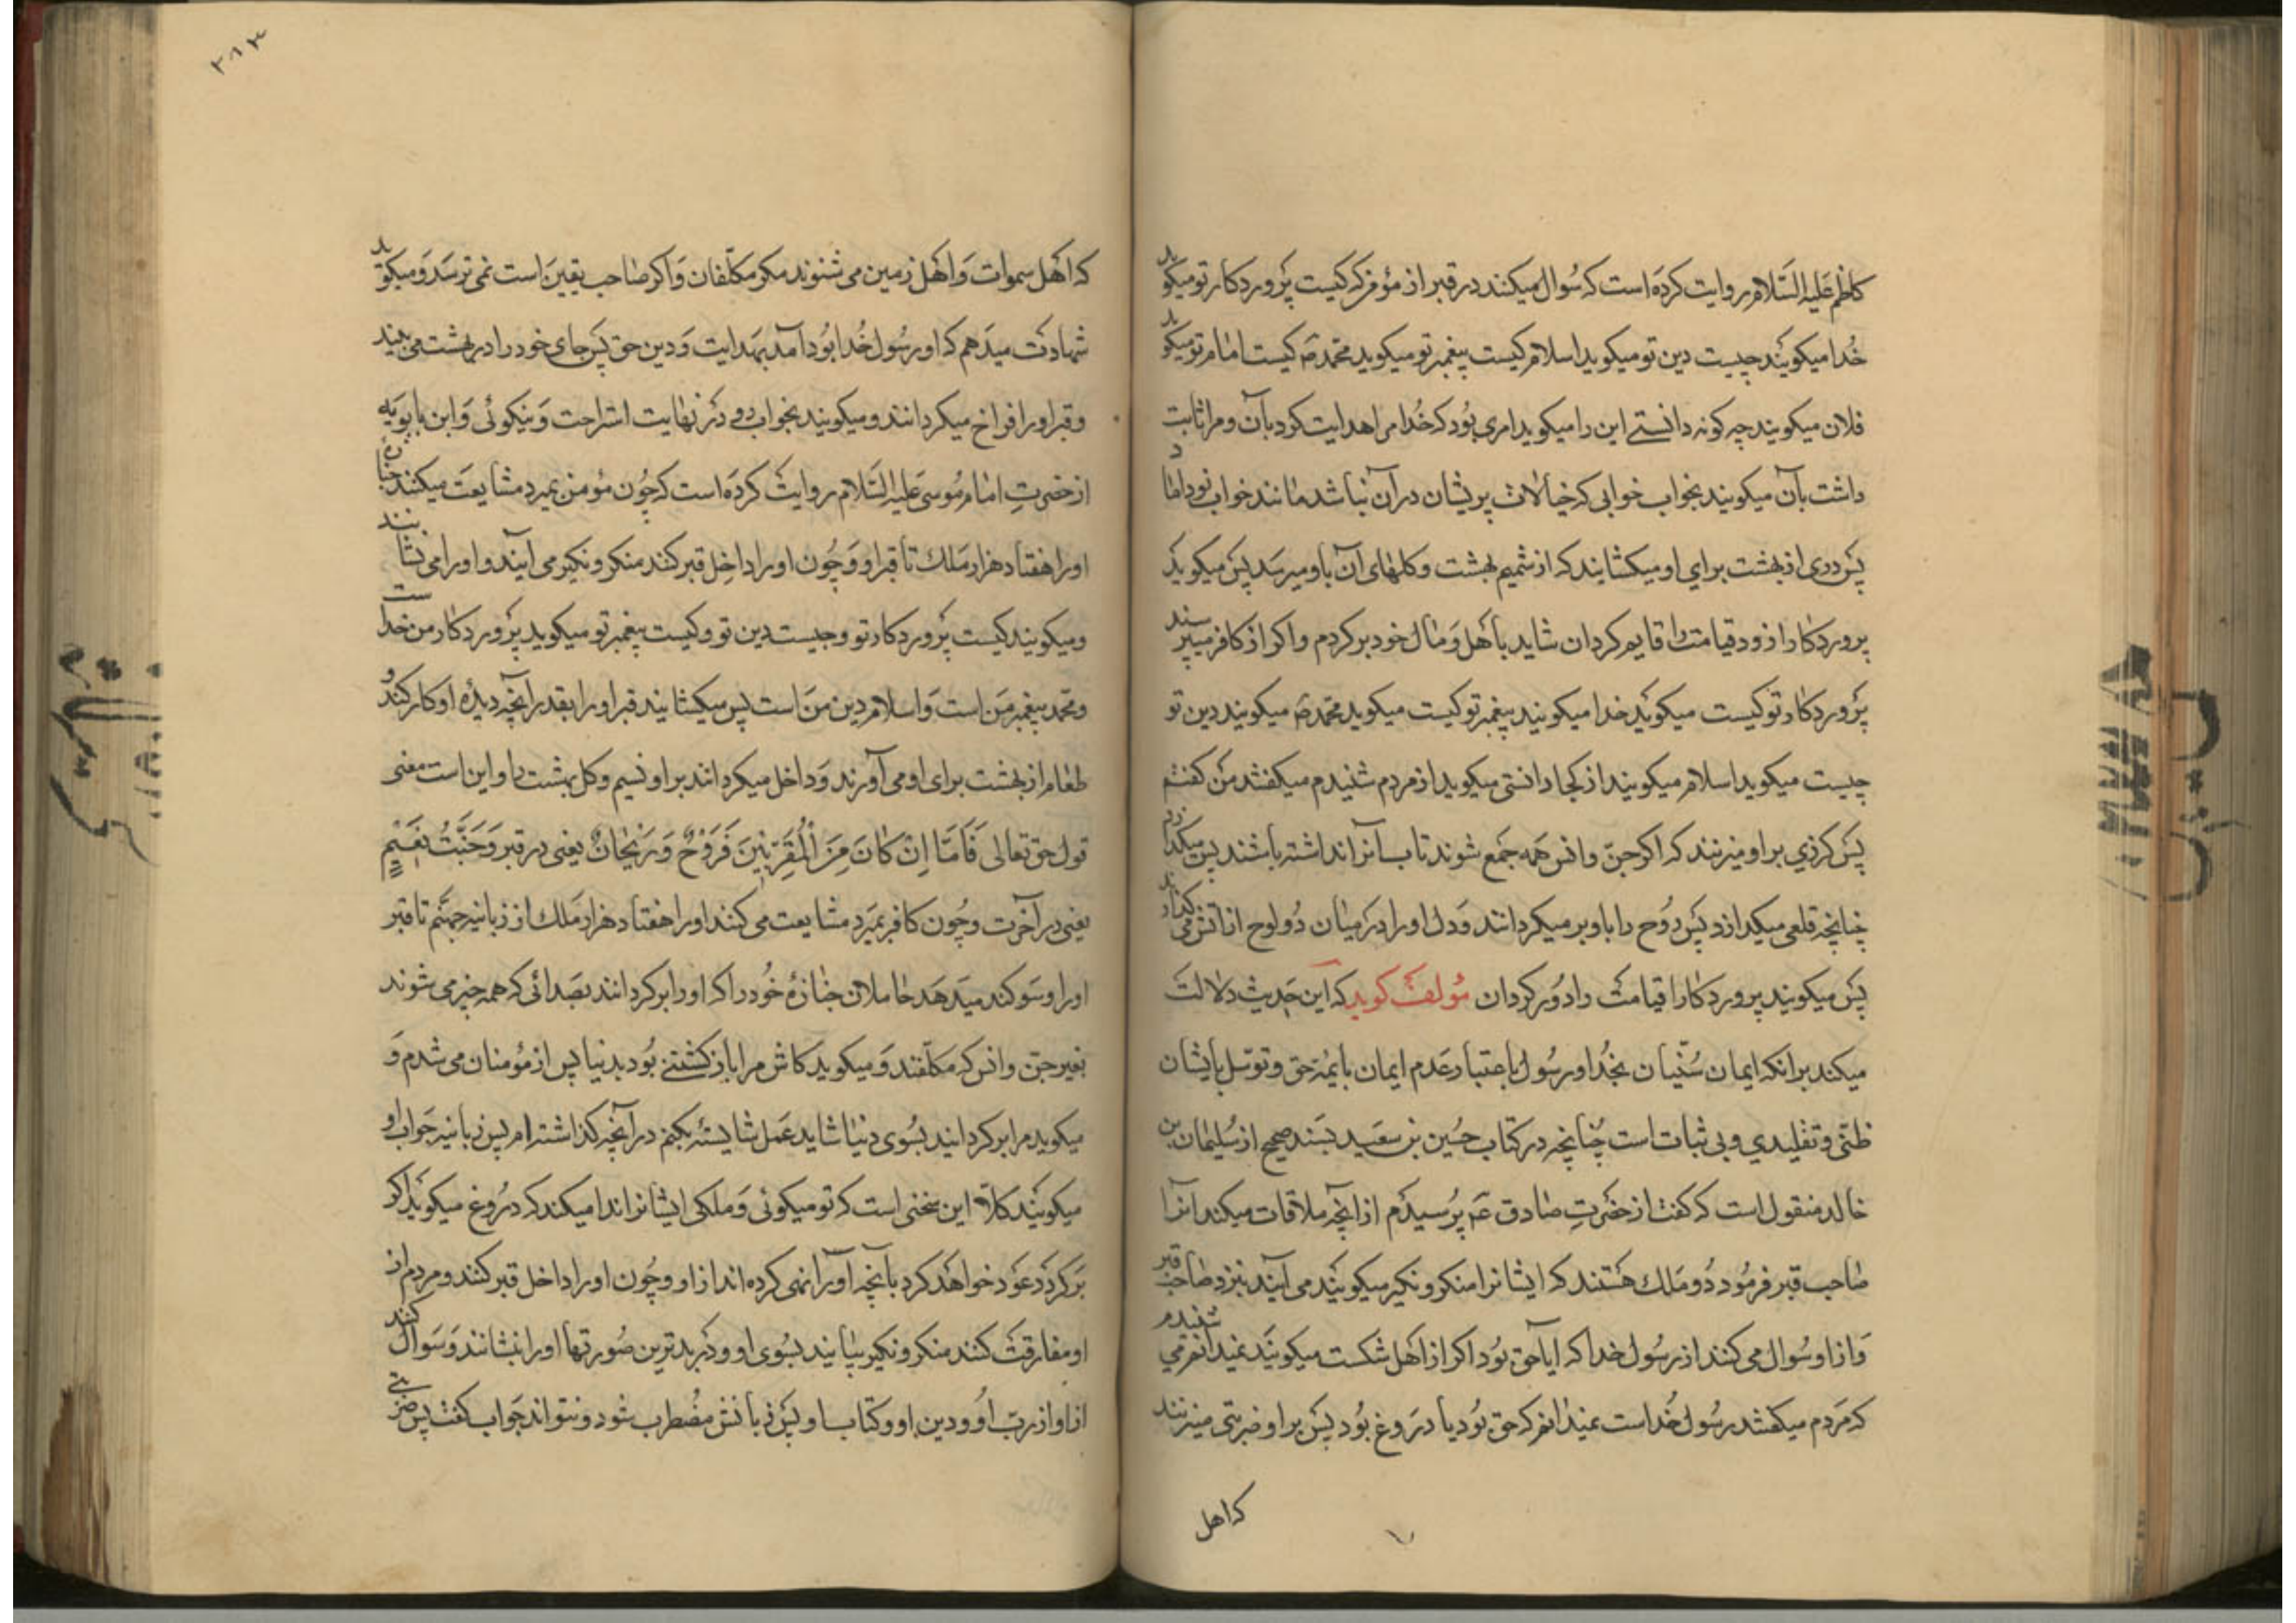 کاظم علیه السلام روایت کرده است که سؤال میکنند در قبر از مؤمن که کیست پروردکار تو میکوید
خدا میکویند چیست دین تو میکوید اسلام کیست پیغمبر تو میکوید محمد ص کیست امام تو میکوید
فلان میکویند چه کونه دانستی این را میکوید امری بود که خدا مرا هدایت کرد بآن و مرا ثابت
داشت بآن میکویند بخواب خوابی که خیالات پریشان در آن نباشد مانند خواب نوداماد
پس دری از بهشت برای او میکشایند که از شمیم بهشت و کلهای آن باو میرسد پس میکوید
پروردکارا زود قیامت را قایم کردان شاید باهل و مال خود برکردم و اکر از کافر میپرسند
پروردکار تو کیست میکوید خدا میکویند پیغمبر تو کیست میکوید محمد ص میکویند دین تو
چیست میکوید اسلام میکویند از کجا دانستی میکوید از مردم شنیدم میکفتند من کفتم
پس کرزی بر او میزنند که اکر جن و انس همه جمع شوند تاب آنرا نداشته باشند پس میکدازد
چنانچه قلعی میکدازد پس روح را باو بر میکردانند و دل او را در میان دو لوح از آتش می کذارند
پس میکویند پروردکارا قیامت را دور کردان مؤلف کوید که این حدیث دلالت
میکند برانکه ایمان سنیان بخدا و رسول باعتبار عدم ایمان بایمه حق و توسل بایشان
ظنی و تقلیدی و بی ثبات است چنانچه در کتاب حسین بن سعید بسند صحیح از سلیمان بن
خالد منقول است که کفت از حضرت صادق ع پرسیدم از آنچه ملاقات میکند آنرا
صاحب قبر فرمود دو ملک هستند که ایشانرا منکر و نکیر میکویند می آیند بنزد صاحب قبر
و از او سؤال می کنند از رسول خدا که آیا حق بود اکر از اهل شکست میکویند نمیدانم می شنیدم
که مردم میکفتند رسول خداست نمیدانم که حق بود یا دروغ بود پس بر او ضربتی میزنند
که اهل
۲۸۳
که اهل سموات و اهل زمین می شنوند مکر مکلفان و اکر صاحب یقین است نمی ترسد و میکوید
شهادت میدهم که او رسول خدا بود آمد بهدایت و دین حق پس جای خود را در بهشت می بیند
و قبر او را فراخ میکردانند و میکویند بخواب در نهایت استراحت و نیکوئی و ابن بابویه
از حضرت امام موسی علیه السلام روایت کرده است که چون مؤمن بمیرد مشایعت میکنند جنازه
او را هفتاد هزار ملک تا قبر او و چون او را داخل قبر کنند منکر و نکیر می آیند و او را می نشانند
و میکویند کیست پروردکار تو و چیست دین تو و کیست پیغمبر تو میکوید پروردکار من خداست
و محمد پیغمبر من است و اسلام دین من است پس میکشایند قبر او را بقدر آنچه دیده او کار کند و
طعام از بهشت برای او می آورند و داخل میکردانند بر او نسیم و کل بهشت را و این است معنی
قول حق تعالی فَأَمَّا إِنْ كَانَ مِنَ الْمُقَرَّبِينَ فَرَوْحٌ وَرَيْحَانٌ یعنی در قبر وَجَنَّتُ نَعِيمٍ
یعنی در آخرت و چون کافر بمیرد مشایعت می کنند او را هفتاد هزار ملک از زبانیه جهنم تا قبر
او را و سوکند میدهد حاملان جنازه خود را که او را برکردانند بصدائی که همه چیز می شنوند
بغیر جن و انس که مکلفند و میکوید کاش مرا بازکشتنی بود بدنیا پس از مؤمنان می شدم و
میکوید مرا برکردانید بسوی دنیا شاید عمل شایسته بکنم در آنچه کذاشته ام پس زبانیه جواب او
میکویند کلا این سخنی است که تو میکوئی و ملکی ایشانرا ندا میکند که دروغ میکوید اکر
برکردد عود خواهد کرد بآنچه او را نهی کرده اند از او و چون او را داخل قبر کنند و مردم از
او مفارقت کنند منکر و نکیر بیایند بسوی او در بدترین صورتها او را بنشانند و سؤال کنند
از او از رب او و دین او و کتاب او پس زبانش مضطرب شود و نتواند جواب کفت پس ضربتی